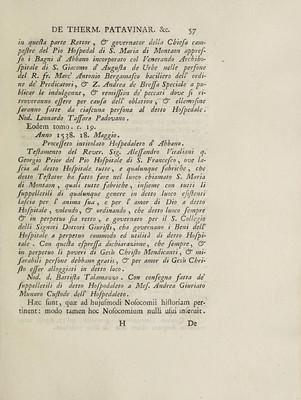 DE THERM. PATAVINAR. &c. 57
in questa parte Rettor, & governator della Chiesa cam-
pestre del Pio Hospedal di S. Maria di Montaon appres-
so i Bagni d'Abbano incorporato col Venerando Archibo-
spitale di S. Giacomo d'Augusta de Urbe nelle persone
del R. fr. Marc' Antonio Bergamasco baciliero dell' ordi-
ne de' Predicatori, & Z. Andrea de Bressa Speciale a pu-
blicar le indulgenze, & remissioni de' peccati dove si ri-
troveranno essere per causa dell' oblation, & ellemosine
saranno fatte da ciascuna persona al detto Hospedale.
Nod. Leonardo Tassara Padovano.
Eodem tomo. c. 19.
Anno 1538. 18. Maggio.
Processetto intitolato Hospedaletto d'Abbano.
Testamento del Rever. Sig. Alessandro Vitaliani q.
Georgio Prior del Pio Hospitale di S. Francesco, ove la-
scia al detto Hospitale tutte, e qualunque fabriche, che
detto Testator ha fatto fare nel luoco chiamato S. Maria
di Montaon, quali tutte fabriche, insieme con tutti li
suppellettili di qualunque genere in detto luoco esistenti
lascia per l'anima sua, e per l'amor di Dio a detto
Hospitale, volendo, & ordinando, che detto luoco sempre
& in perpetuo sia retto, e governato per il S. Collegio
delli Signori Dottori Giuristi, che governano i Beni dell'
Hospitale a perpetuo commodo ed utilità di detto Hospi-
tale. Con questa espressa dichiarazione, che sempre, &
in perpetuo li poveri di Gesù Christo Mendicanti, & mi-
serabili persone debbano gratis, & per amor di Gesù Chri-
sto esser alloggiati in detto loco.
Nod. d. Battista Talamazzo. Con consegna fatta de'
suppellettili di detto Hospedaletto a Mes. Andrea Giuriato
Munaro Custode dell' Hospedaletto.
Hæc sunt, quæ ad hujusmodi Nosocomii historiam per-
tinent: modo tamen hoc Nosocomium nulli usui inservit.
H De